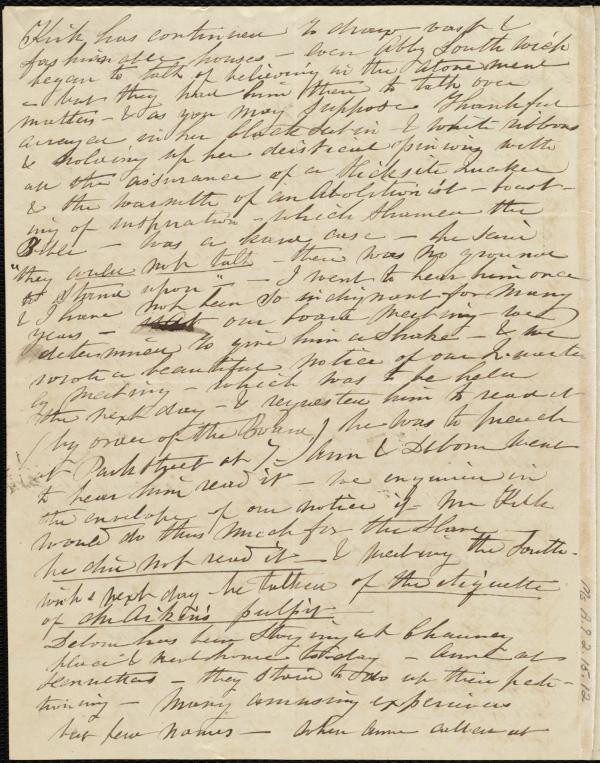 Kirk has continued to draw vast &
fashionable houses - even Abby Southwick
began to talk of believing in the atonement
- but they had him there to talk over
matters - & as you may suppose Thankful
arrayed in her black satin & white ribbons
& holding up her deistical opinions with
all the assurance of a Hicksite Quaker
& the warmth of an Abolitionist - boast-
ing of inspiration - which shamed the
Bible - was a hard case - he said
"they could not talk - there was no ground
to stand upon" - I went to hear him once
& I have not been so indignant for many
years - our board meeting we
determined to give him a shake - & we
wrote a beautiful notice of our Quarter
ly Meeting - which was to be held
the next day - & requested him to read it
(by order of the Board) he was to preach
at Park Street at 7 - Ann & Debora went
to hear him read it - we enquired in
the envelope of our notice if Mr Kirk
would do thus much for the Slave
he did not read it - & meeting the South-
wicks next day he talked of the etiquette
of Mr Aiken's pulpit
Debora has been staying at Chauncy
place & went home to-day - Anne at
Hennrettas - they start to do up their peti-
tioning - Many amusing experiences
but few names - When Anne called at
Ms.A.9.2.15.12